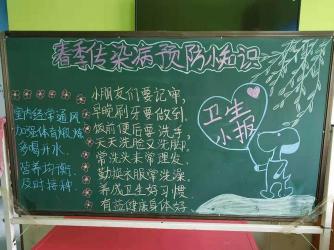 春季传染病预防小知识
室内经常通风
加强体育锻炼
多喝开水.
营养均衡.
及时接种.
小朋友们要记牢,
早晚刷牙要做到,
饭前便后要洗手,
天天洗脸又洗脚,
常洗头来常理发,
勤换衣服常洗澡,
养成卫生好习惯,
有益健康身体好.
卫生
小报